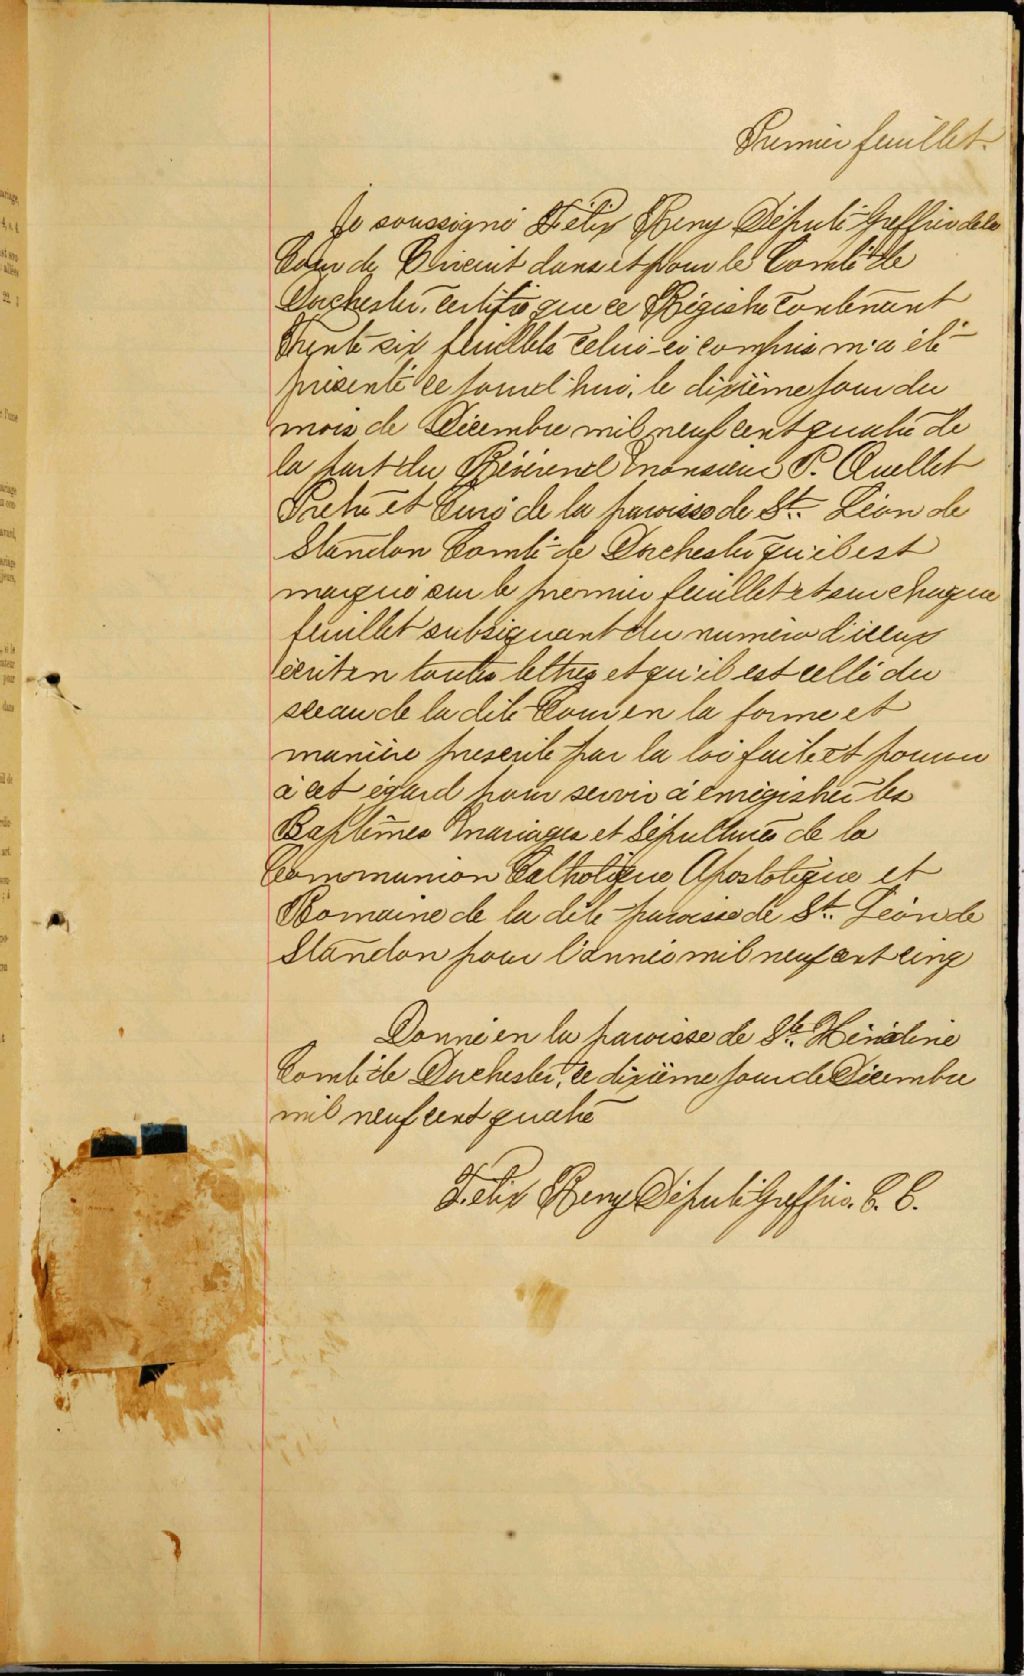 Premier feuillet.
Je soussigné Félix Remy Député-Greffier de la
Cour de Circuit dans et pour le Comté de
Dorchester, certifie que ce Régistre contenant
Trente six feuillets celui-ci compris m'a été
présenté ce jourd'hui, le dixième jour du
mois de Décembre mil neuf cent quatre de
la part du Révérend Monsieur P. Ouellet
Prêtre et Curé de la paroisse de St. Léon de
Standon Comté de Dorchester qu'il est
marqué sur le premier feuillet et sur chaque
feuillet subséquant du numéro d'iceux
écrit en toutes lettres et qu'il est cellé du
sceau de la dite Cour en la forme et
manière prescrite par la loi faite et pourvu
à cet égard pour servir à enrégistrer les
Baptêmes Mariages et Sépultures de la
Communion Catholique Apostolique et
Romaine de la dite paroisse de St. Léon de
Standon pour l'année mil neuf cent cinq
Donné en la paroisse de Ste. Hénédine
Comté de Dorchester, ce dixième jour de Décembre
mil neuf cent quatre
Félix Remy Député Greffier. C. C.